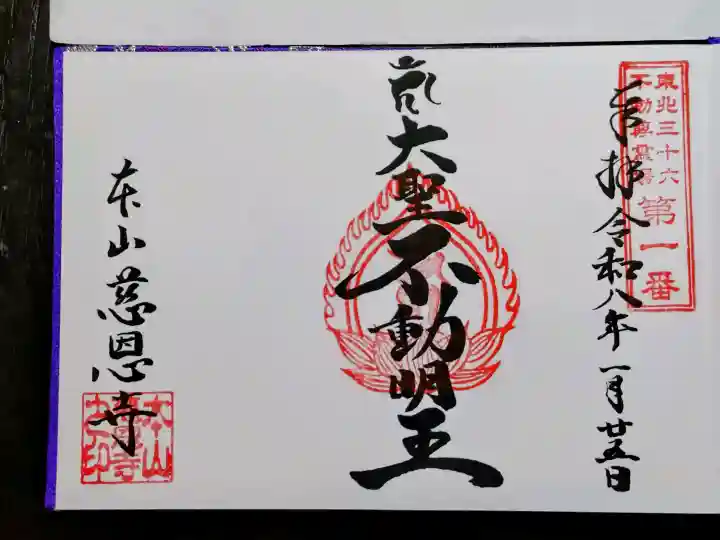 東北三十六
不動尊霊場
第一番
奉拝 令和八年 一月廿五日
大聖不動明王
本山慈恩寺
本山
慈恩寺
之印